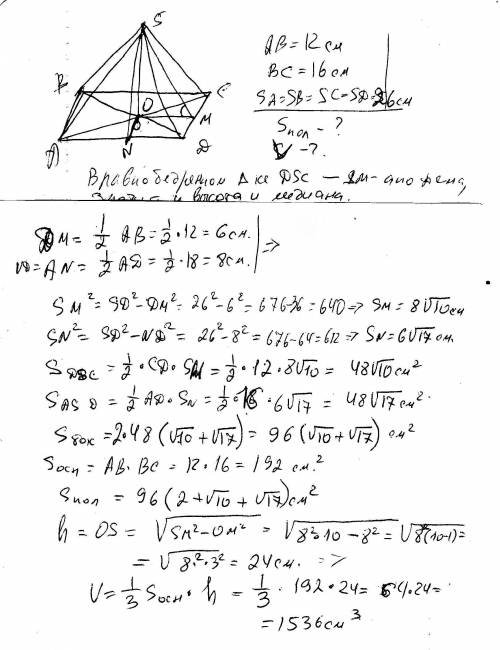 S
B
C
O
M
A
N
D
AB=12см
BC=16см
SA=SB=SC=SD=26см
Sпол-?
V-?.
В равнобедренном Δ ке DSC - SM- апофема,
и высота и медиана.
DM= 1/2 AB= 1/2·12=6см.
ND=AN= 1/2 AD= 1/2·18=8см. =>
SM²=SD²-DM²=26²-6²=676-36=640=>SM=8√10см
SN²=SD²-ND²=26²-8²=676-64=612=>SN=6√17см.
SDSC=1/2·CD·SM=1/2·12·8√10=48√10см²
SASD=1/2AD·SN=1/2·16·6√17=48√17см²
Sбок=2·48(√10+√17)=96(√10+√17)см²
Sосн=AB·BC=12·16=192см.²
Sпол=96(2+√10+√17)см²
h=OS=√SM²-OM²=√8²·10-8²=√8²(10-1)=
=√8²·3²=24см. =>
V=1/3Sосн·h=1/3·192·24=64·24=
=1536см³